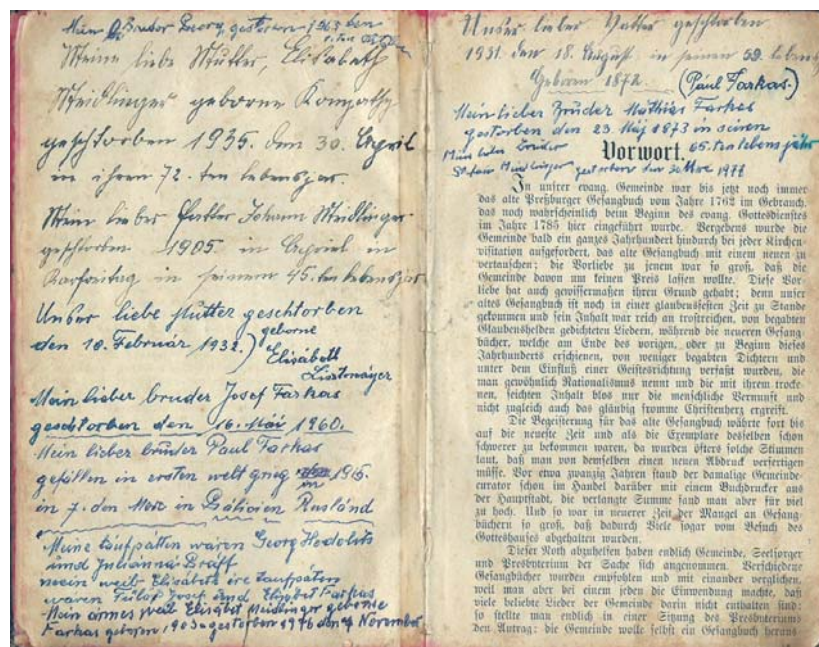 Mein Bruder Georg, gestorben 1963 den
Meine liebe Mutter, Elisabeth
Meidlinger geborne
geschtorben 1935. den 30. April
in ihren 72. ten lebensjar.
Mein lieber Vatter Johann Meidlinger
geschtorben 1905 in Aepriel in
Karfreitag in seinem 45. ten lebensjar
Unser liebe Mutter geschtorben
den 18. Februar 1932.) geborne
Elisabeth
Mein lieber bruder Josef Farkas
geschtorben den 16. Mäi 1960.
Mein lieber bruder Paul Farkas
gefällen in ersten welt grieg 1915.
in 7. den Merz in Gälizien Rusländ
Meine taufpatten wären Georg
und Julianna
mein weib Elisabeth ire taufpaten
waren Josef und Elisabet Farkas
Mein armes weib Elisabet Meidlinger geborne
Farkas geboren 1903 gestorben 1976 den 4 November
Unser lieber Vatter geschtorben
1931. den 18. August in seinen 59. lebens
Geboren 1872. (Paul Farkas.)
Mein lieber Bruder Mathias Farkas
gestorben den 23. Mäj 1973 in seinen
65. ten lebens jähr
Mein lieber Bruder
Stefan Meidlinger gestorben den 30 Merz 1977
Vorwort.
In unsrer evang. Gemeinde war bis jetzt noch immer
das alte Preßburger Gesangbuch vom Jahre 1762 im Gebrauch,
das noch wahrscheinlich beim Beginn des evang. Gottesdienstes
im Jahre 1785 hier eingeführt wurde. Vergebens wurde die
Gemeinde bald ein ganzes Jahrhundert hindurch bei jeder Kirchen-
visitation aufgefordert, das alte Gesangbuch mit einem neuen zu
vertauschen; die Vorliebe zu jenem war so groß, daß die
Gemeinde davon um keinen Preis lassen wollte. Diese Vor-
liebe hat auch gewissermaßen ihren Grund gehabt; denn unser
altes Gesangbuch ist noch in einer glaubensfesten Zeit zu Stande
gekommen und sein Inhalt war reich an trostreichen, von begabten
Glaubenshelden gedichteten Liedern, während die neueren Gesang-
bücher, welche am Ende des vorigen, oder zu Beginn dieses
Jahrhunderts erschienen, von weniger begabten Dichtern und
unter dem Einfluß einer Geistesrichtung verfaßt wurden, die
man gewöhnlich Rationalismus nennt und die mit ihrem trocke-
nen, seichten Inhalt blos nur die menschliche Vernunft und
nicht zugleich auch das gläubig fromme Christenherz ergreift.
Die Begeisterung für das alte Gesangbuch währte fort bis
auf die neueste Zeit und als die Exemplare desselben schon
schwerer zu bekommen waren, da wurden öfters solche Stimmen
laut, daß man von demselben einen neuen Abdruck verfertigen
müsse. Vor etwa zwanzig Jahren stand der damalige Gemeinde-
curator schon im Handel darüber mit einem Buchdrucker aus
der Hauptstadt, die verlangte Summe fand man aber für viel
zu hoch. Und so war in neuerer Zeit der Mangel an Gesang-
büchern so groß, daß dadurch Viele sogar vom Besuch des
Gotteshauses abgehalten wurden.
Dieser Noth abzuhelfen haben endlich Gemeinde, Seelsorger
und Presbyterium der Sache sich angenommen. Verschiedene
Gesangbücher wurden empfohlen und mit einander verglichen,
weil man aber bei einem jeden die Einwendung machte, daß
viele beliebte Lieder der Gemeinde darin nicht enthalten sind:
so stellte man endlich in einer Sitzung des Presbyteriums
den Antrag: die Gemeinde wolle selbst ein Gesangbuch heraus-